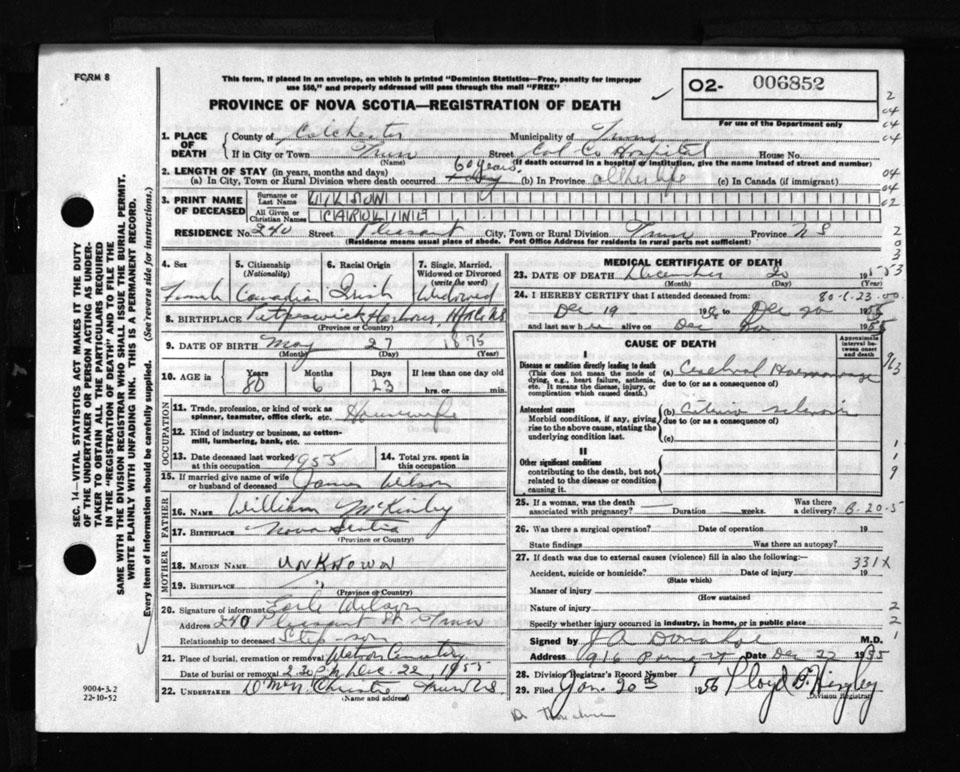 FORM 8
This form, if placed in an envelope, on which is printed "Dominion Statistics—Free, penalty for improper
use $50," and properly addressed will pass through the mail "FREE"
O2- 006852
For use of the Department only
PROVINCE OF NOVA SCOTIA—REGISTRATION OF DEATH
1. PLACE OF DEATH
County of Colchester Municipality of Truro
If in City or Town Truro Street Col. Co Hospital House No.
(Name) (If death occurred in a hospital or institution, give the name instead of street and number)
2. LENGTH OF STAY (in years, months and days)
(a) In City, Town or Rural Division where death occurred 60 years (b) In Province all her life (c) In Canada (if immigrant)
3. PRINT NAME OF DECEASED
Surname or Last Name
All Given or Christian Names CAROLINE
RESIDENCE No. 240 Street Pleasant City, Town or Rural Division Truro Province N S
(Residence means usual place of abode. Post Office Address for residents in rural parts not sufficient)
4. Sex Female
5. Citizenship (Nationality) Canadian
6. Racial Origin Irish
7. Single, Married, Widowed or Divorced (write the word) Widowed
8. BIRTHPLACE Petpeswick Harbour,
(Province or Country)
9. DATE OF BIRTH May 27 1875
(Month) (Day) (Year)
10. AGE in Years 80 Months 6 Days 23 If less than one day old
hrs. or min.
OCCUPATION
11. Trade, profession, or kind of work as spinner, teamster, office clerk, etc. Housewife
12. Kind of industry or business, as cotton-mill, lumbering, bank, etc.
13. Date deceased last worked at this occupation 1955
14. Total yrs. spent in this occupation
15. If married give name of wife or husband of deceased James Wilson
FATHER
16. NAME William McKinley
17. BIRTHPLACE Nova Scotia
(Province or Country)
MOTHER
18. MAIDEN NAME Unknown
19. BIRTHPLACE "
(Province or Country)
20. Signature of informant Earle Wilson
Address 240 Pleasant St Truro
Relationship to deceased Step-son
21. Place of burial, cremation or removal Watson Cemetery
Date of burial or removal 2.30 PM Dec. 22, 1955
22. UNDERTAKER Christie Truro N.S.
(Name and address)
MEDICAL CERTIFICATE OF DEATH
23. DATE OF DEATH December 20 1955
(Month) (Day) (Year)
24. I HEREBY CERTIFY that I attended deceased from: 80-6-23-00
Dec 19 195 to Dec 20 1955
and last saw her alive on Dec 1955
CAUSE OF DEATH
Approximate interval between onset and death
I
Disease or condition directly leading to death
(This does not mean the mode of dying, e.g., heart failure, asthenia, etc. It means the disease, injury, or complication which caused death.)
(a) Cerebral Haemorrhage
due to (or as a consequence of)
Antecedent causes
Morbid conditions, if any, giving rise to the above cause, stating the underlying condition last.
(b)
due to (or as a consequence of)
(c)
II
Other significant conditions
contributing to the death, but not related to the disease or condition causing it.
25. If a woman, was the death associated with pregnancy? Duration weeks. Was there a delivery? B-20-5
26. Was there a surgical operation? Date of operation 19
State findings Was there an autopsy?
27. If death was due to external causes (violence) fill in also the following:— 331X
Accident, suicide or homicide? Date of injury 19
(State which)
Manner of injury
(How sustained)
Nature of injury
Specify whether injury occurred in industry, in home, or in public place
Signed by J A Donahoe M.D.
Address 916 Prince St Date Dec 22 1955
28. Division Registrar's Record Number
29. Filed Jan. 20th 1956 Lloyd
Division Registrar
SEC. 14—VITAL STATISTICS ACT MAKES IT THE DUTY
OF THE UNDERTAKER OR PERSON ACTING AS UNDER-
TAKER TO OBTAIN ALL THE PARTICULARS REQUIRED
IN THE "REGISTRATION OF DEATH" AND TO FILE THE
SAME WITH THE DIVISION REGISTRAR WHO SHALL ISSUE THE BURIAL PERMIT.
WRITE PLAINLY WITH UNFADING INK. THIS IS A PERMANENT RECORD.
Every item of information should be carefully supplied. (See reverse side for instructions.)
9004-3.2
22-10-52